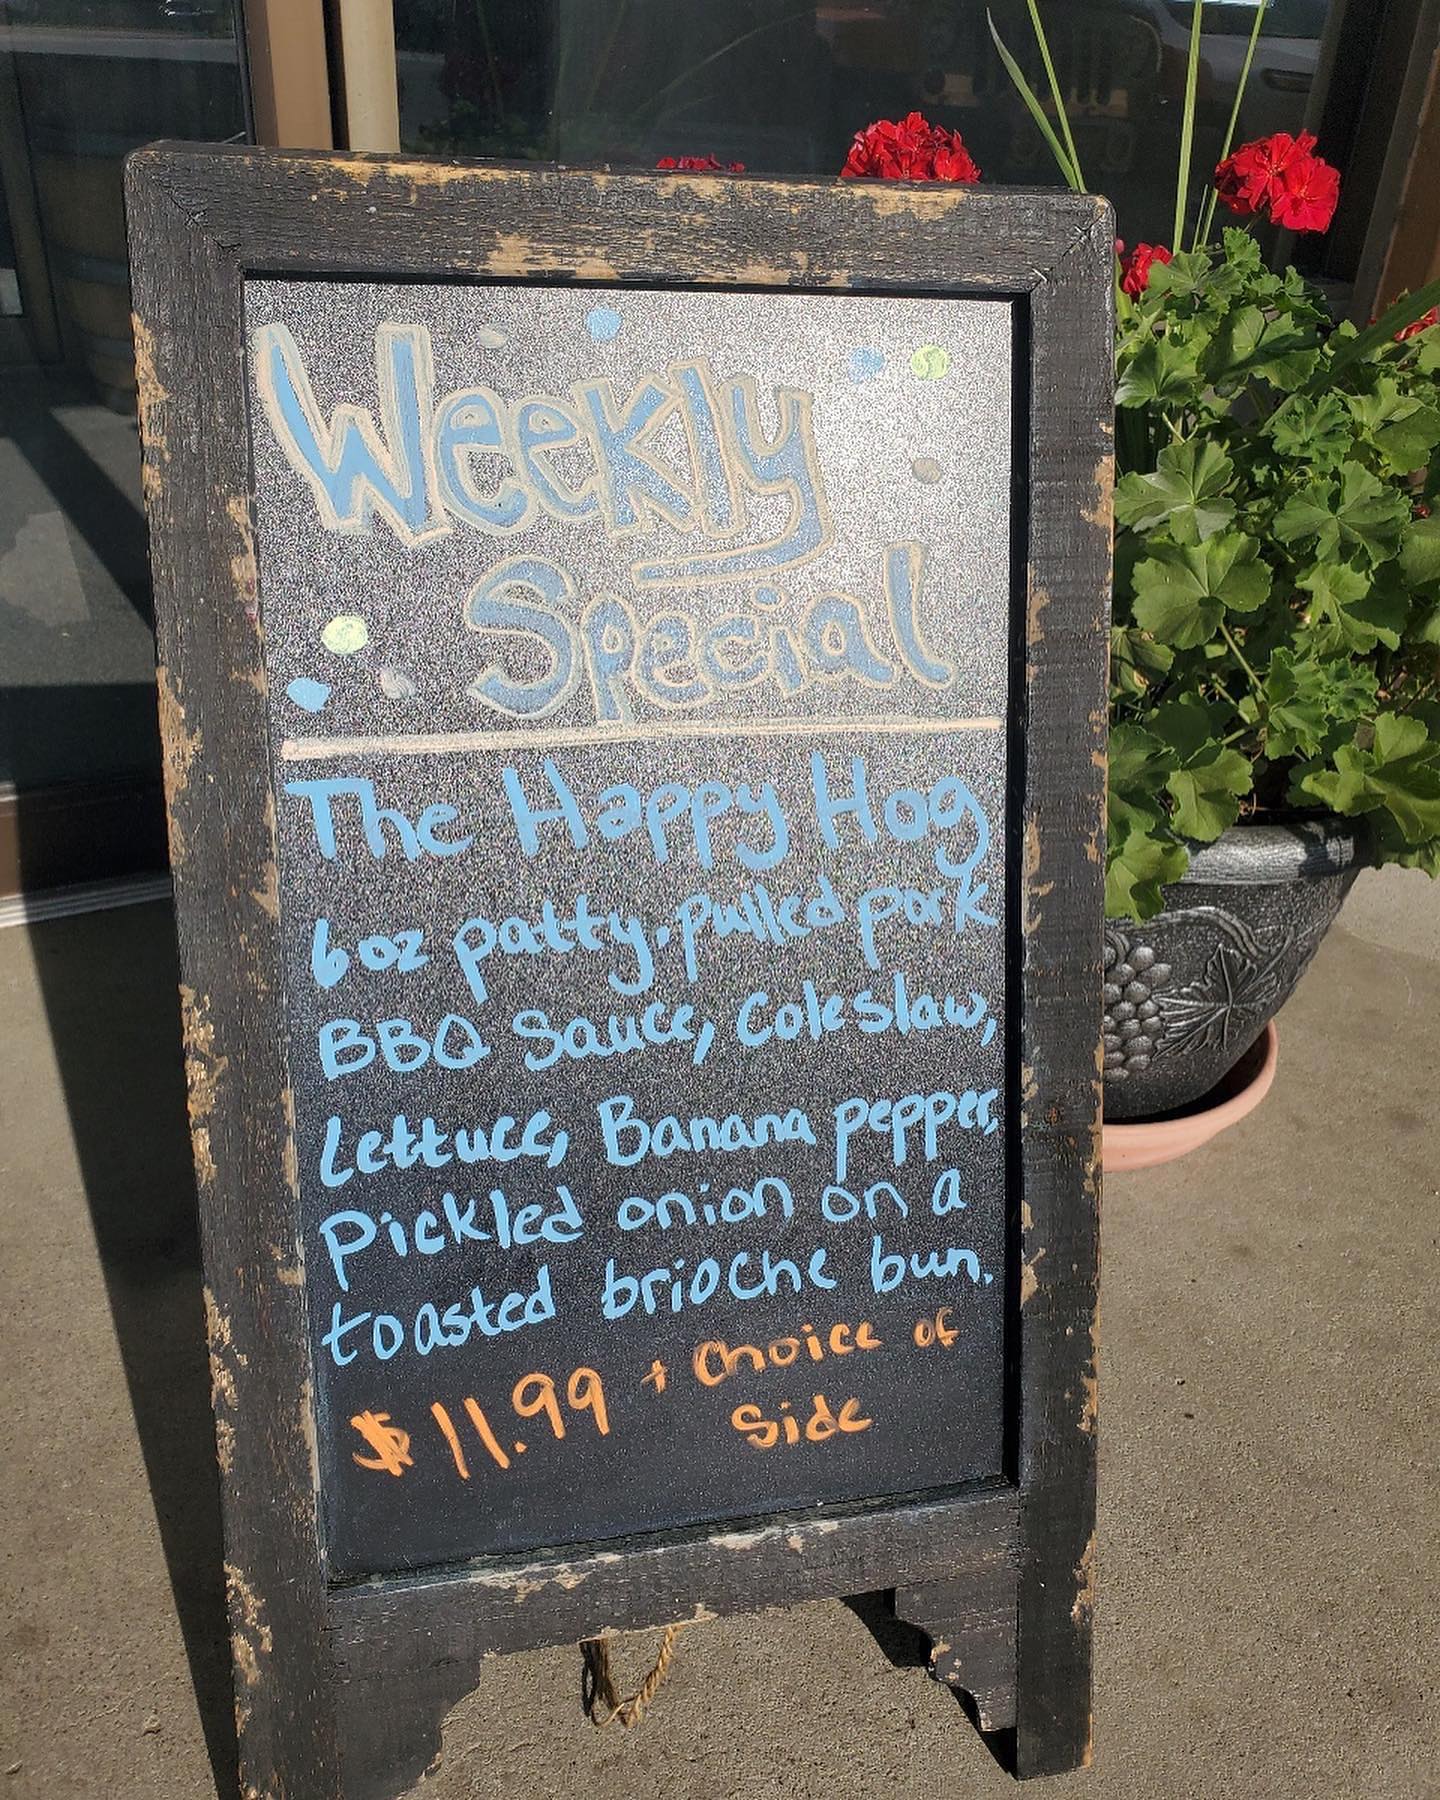 Weekly
Special
The Happy Hog
6oz patty, pulled pork
BBQ Sauce, Coleslaw,
Lettuce, Banana pepper,
Pickled onion on a
toasted brioche bun.
$11.99 + Choice of
Side